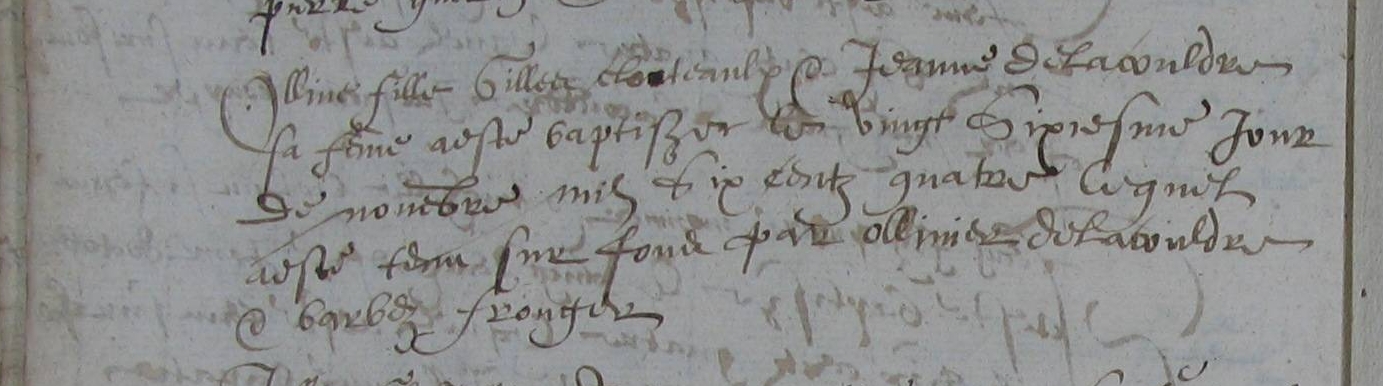 Ollive fille Gilles Clouteaulx & Jeanne Delacouldre
sa feme aesté baptiszer le vingt Sixiesme Jour
De novebre mil Six centz quatre lequel
aesté tenu sur fond par Ollivier delacouldre
& barbe fronger